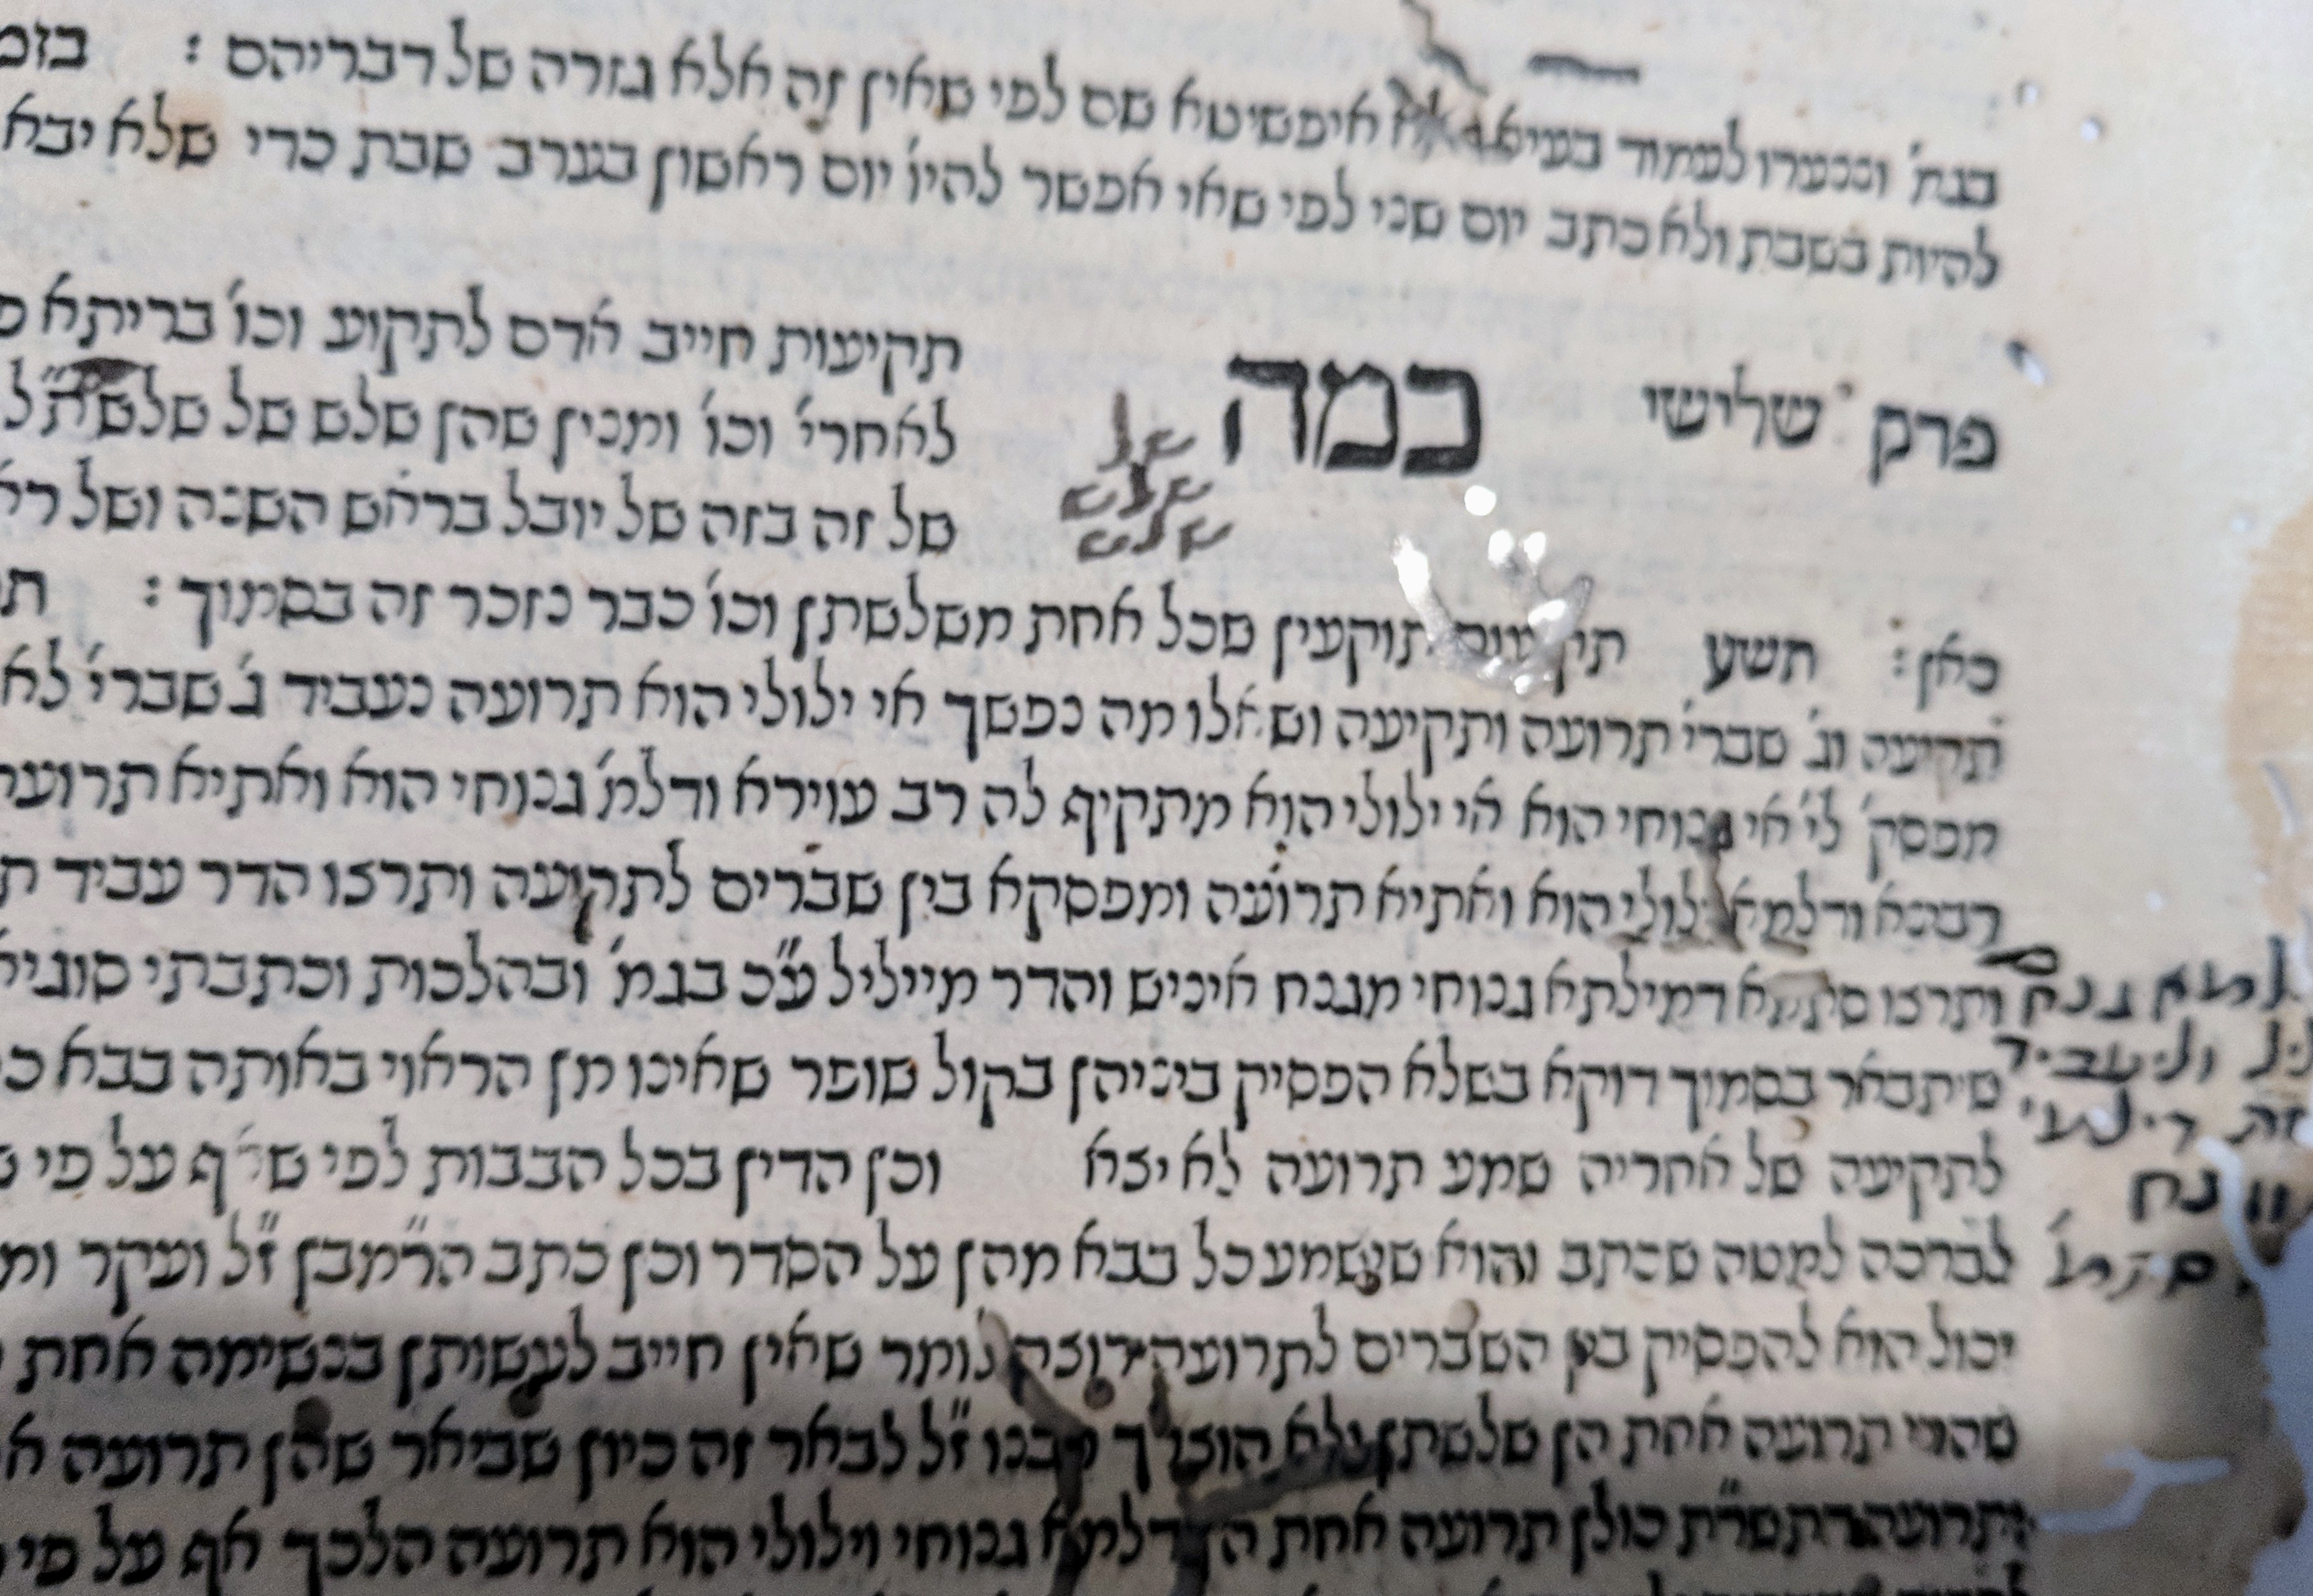 בגמ' וכנערו לעמוד איפשיטא שם לפי שאין זה אלא גזרה של דבריהם : בזמ
להיות בשבת ולא כתב יום שני לפי שאי אפשר להיו' יום ראשון בערב שבת כדי שלא יבא
פרק שלישי כמה תקיעות חייב אדם לתקוע וכו' בריתא
לאחרי' וכו' ומנין שהן שלש של שלש
של
שלש
שלש
של זה בזה של יובל בראש השנה ושל
כאן : תשע תוקעין שכל אחת משלשתן וכו' כבר נזכר זה בסמוך :
תקיעה וג' שברי' תרועה ותקיעה ושאלו מה נפשך אי ילולי הוא תרועה נעביד ג' שברי' לא
מפסק' לי' אי גנוחי הוא אי ילולי הוא מתקיף לה רב עוירא ודלמ' גנוחי הוא ואתיא
רבינא ודלמא ילולי הוא ואתיא תרועה ומפסקא בין שברים לתקיעה ותרצו הדר עביד
ותרצו סתמא דמילתא גנוחי מגנח איניש והדר מייליל ע"כ בגמ' ובהלכות וכתבתי
שיתבאר בסמוך דוקא בשלא הפסיק ביניהן בקול שופר שאינו מן הראוי באותה בבא
לתקיעה של אחריה שמע תרועה לא יצא וכן הדין בכל הבבות לפי על פי
לברכה למטה שכתב והוא שישמע כל בבא מהן על הסדר וכן כתב הר"מב"ן ז"ל ועקר
יכול הוא להפסיק בין השברים לתרועה רוצה לומר שאין חייב לעשותן בנשימה אחת
שהרי תרועה אחת הן שלשתן ולא הוצרך רבנו ז"ל לבאר זה כיון שביאר שהן תרועה
כולן תרועה אחת הן דלמא גנוחי וילולי הוא תרועה הלכך אף על פי